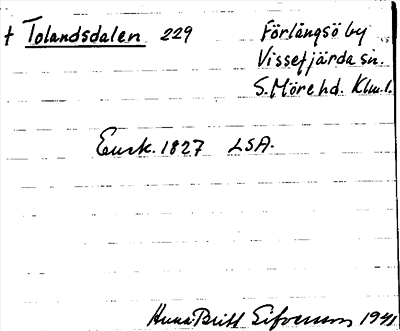 † Tolandsdalen 229 Förlångsö by
Vissefjärda sn.
S. Möre hd. Klm. l.
Ensk. 1827 LSA.
Anna-Britt Sifversson 1941